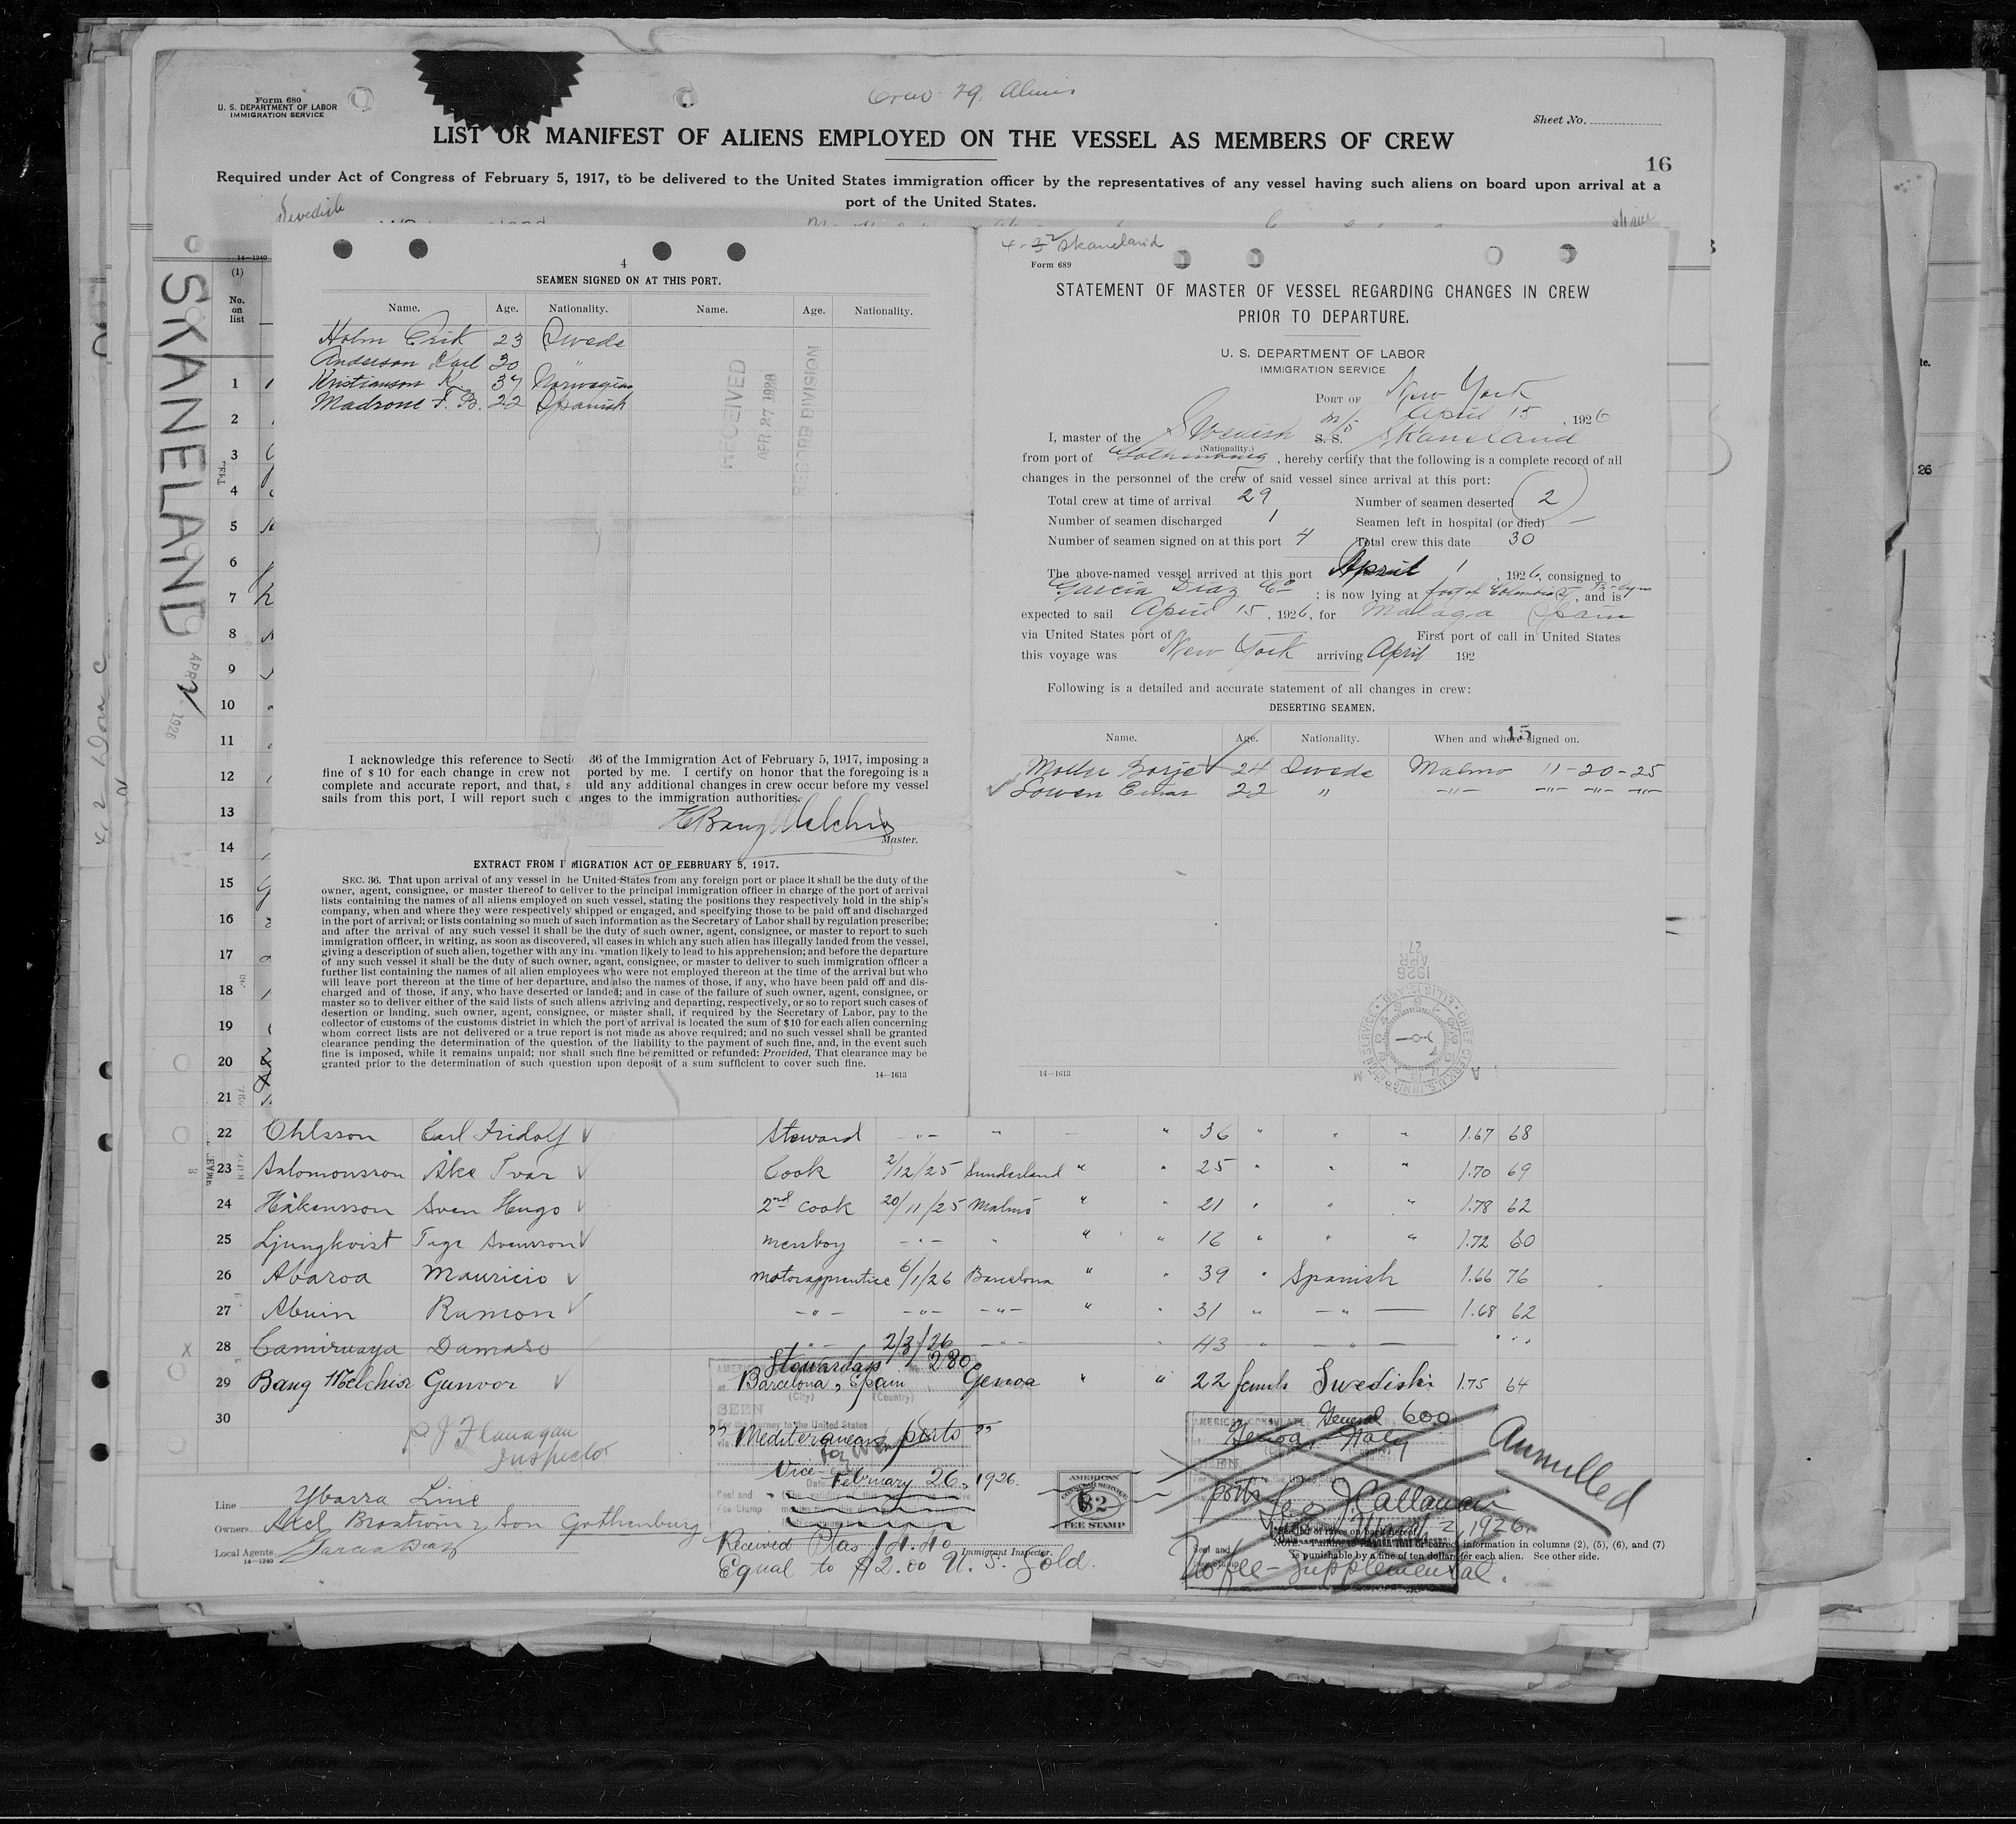 Form 680
U. S. DEPARTMENT OF LABOR
IMMIGRATION SERVICE
Crew 29 Aliens
Sheet No.
LIST OR MANIFEST OF ALIENS EMPLOYED ON THE VESSEL AS MEMBERS OF CREW
16
Required under Act of Congress of February 5, 1917, to be delivered to the United States immigration officer by the representatives of any vessel having such aliens on board upon arrival at a
port of the United States.
Swedish
14—1240
(1)
No.
on
list
SKANELAND
APR 2 1926
4
SEAMEN SIGNED ON AT THIS PORT.
Name. Age. Nationality. Name. Age. Nationality.
Holm Erik 23 Swede
Anderson Karl 30 "
Kristianson K. 37 Norwegian
Madrone F. B. 22 Spanish
RECEIVED
APR 27 1926
RECORD DIVISION
I acknowledge this reference to Secti 36 of the Immigration Act of February 5, 1917, imposing a
fine of $10 for each change in crew not ported by me. I certify on honor that the foregoing is a
complete and accurate report, and that, s uld any additional changes in crew occur before my vessel
sails from this port, I will report such c anges to the immigration authorities.
H Bang Melchior
Master.
EXTRACT FROM I MIGRATION ACT OF FEBRUARY 5, 1917.
SEC. 36. That upon arrival of any vessel in he United States from any foreign port or place it shall be the duty of the
owner, agent, consignee, or master thereof to deliver to the principal immigration officer in charge of the port of arrival
lists containing the names of all aliens employed on such vessel, stating the positions they respectively hold in the ship's
company, when and where they were respectively shipped or engaged, and specifying those to be paid off and discharged
in the port of arrival; or lists containing so much of such information as the Secretary of Labor shall by regulation prescribe;
and after the arrival of any such vessel it shall be the duty of such owner, agent, consignee, or master to report to such
immigration officer, in writing, as soon as discovered, all cases in which any such alien has illegally landed from the vessel,
giving a description of such alien, together with any in mation likely to lead to his apprehension; and before the departure
of any such vessel it shall be the duty of such owner, agent, consignee, or master to deliver to such immigration officer a
further list containing the names of all alien employees who were not employed thereon at the time of the arrival but who
will leave port thereon at the time of her departure, and also the names of those, if any, who have been paid off and dis-
charged and of those, if any, who have deserted or landed; and in case of the failure of such owner, agent, consignee, or
master so to deliver either of the said lists of such aliens arriving and departing, respectively, or so to report such cases of
desertion or landing, such owner, agent, consignee, or master shall, if required by the Secretary of Labor, pay to the
collector of customs of the customs district in which the port of arrival is located the sum of $10 for each alien concerning
whom correct lists are not delivered or a true report is not made as above required; and no such vessel shall be granted
clearance pending the determination of the question of the liability to the payment of such fine, and, in the event such
fine is imposed, while it remains unpaid; nor shall such fine be remitted or refunded: Provided, That clearance may be
granted prior to the determination of such question upon deposit of a sum sufficient to cover such fine.
14—1613
Skaneland
Form 689
STATEMENT OF MASTER OF VESSEL REGARDING CHANGES IN CREW
PRIOR TO DEPARTURE.
U. S. DEPARTMENT OF LABOR
IMMIGRATION SERVICE
PORT OF New York
April 15, 1926
I, master of the Swedish M/S S. S. Skaneland
(Nationality.)
from port of Gothenburg, hereby certify that the following is a complete record of all
changes in the personnel of the crew of said vessel since arrival at this port:
Total crew at time of arrival 29 Number of seamen deserted 2
Number of seamen discharged 1 Seamen left in hospital (or died) —
Number of seamen signed on at this port 4 Total crew this date 30
The above-named vessel arrived at this port April 1, 1926, consigned to
Garcia Diaz Co ; is now lying at foot of Columbia St Brklyn, and is
expected to sail April 15, 1926, for Malaga Spain
via United States port of First port of call in United States
this voyage was New York arriving April 192
Following is a detailed and accurate statement of all changes in crew:
DESERTING SEAMEN.
15
Name. Age. Nationality. When and where signed on.
Moller Borje 24 Swede Malmo 11-20-25
Lowen Einar 22 " -"- -"- -"- -"-
APR 27
1926
14—1613
1
2
3
4
5
6
7
8
9
10
11
12
13
14
15
16
17
18
19
20
21
22 Ohlsson Carl Fridolf Steward -"- " " 36 " " " 1.67 68
23 Salomonsson Åke Ivar Cook 2/12/25 Sunderland " " 25 " " " 1.70 69
24 Håkansson Sven Hugo 2nd cook 20/11/25 Malmö " " 21 " " " 1.78 62
25 Ljungkvist Tage Svensson messboy -"- " " " 16 " " " 1.72 60
26 Abaroa Mauricio motorapprentice 6/1/26 Barcelona " " 39 " Spanish 1.66 76
27 Abuin Ramon -"- -"- -"- " " 31 " -"- 1.68 62
28 Camiruaga Damaso -"- 2/3/26 -"- " 43 " -"-
29 Bang Melchior Gunvor Stewardess Genoa " " 22 female Swedish 1.75 64
30
P J Flanagan
Inspector
280
Barcelona, Spain
(City) (Country)
SEEN
For the journey to the United States
via
" Mediteranean ports "
Vice
February 26, 1926.
AMERICAN
CONSULAR SERVICE
$2
FEE STAMP
Received Ptas 14.40
Equal to $2.00 U. S. Gold.
Immigrant Inspector.
AMERICAN CONSULATE General 600
Genoa, Italy
ports
March 2, 1926.
No fee - Supplemental.
Annulled
NOTE.—Failure to furnish full or correct information in columns (2), (5), (6), and (7)
is punishable by a fine of ten dollars for each alien. See other side.
Line Ybarra Line
Owners Axel Broström & Son Gothenburg
Local Agents Garcia Diaz
14—1240